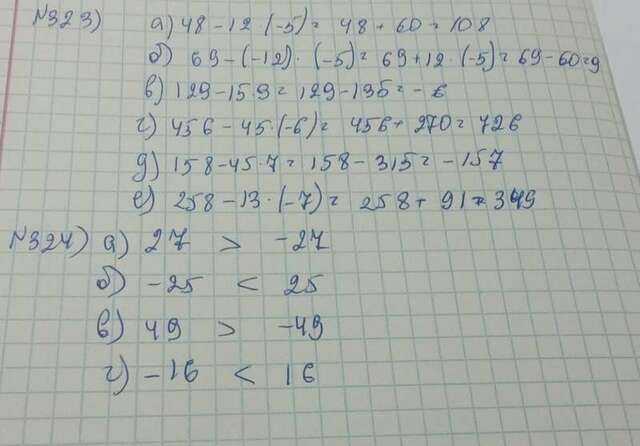 N323) а) 48 - 12 · (-5) = 48 + 60 = 108
б) 69 - (-12) · (-5) = 69 + 12 · (-5) = 69 - 60 = 9
в) 129 - 15·9 = 129 - 135 = - 6
г) 456 - 45 · (-6) = 456 + 270 = 726
д) 158 - 45·7 = 158 - 315 = - 157
е) 258 - 13 · (-7) = 258 + 91 = 349
N324) а) 27 > -27
б) -25 < 25
в) 49 > -49
г) -16 < 16